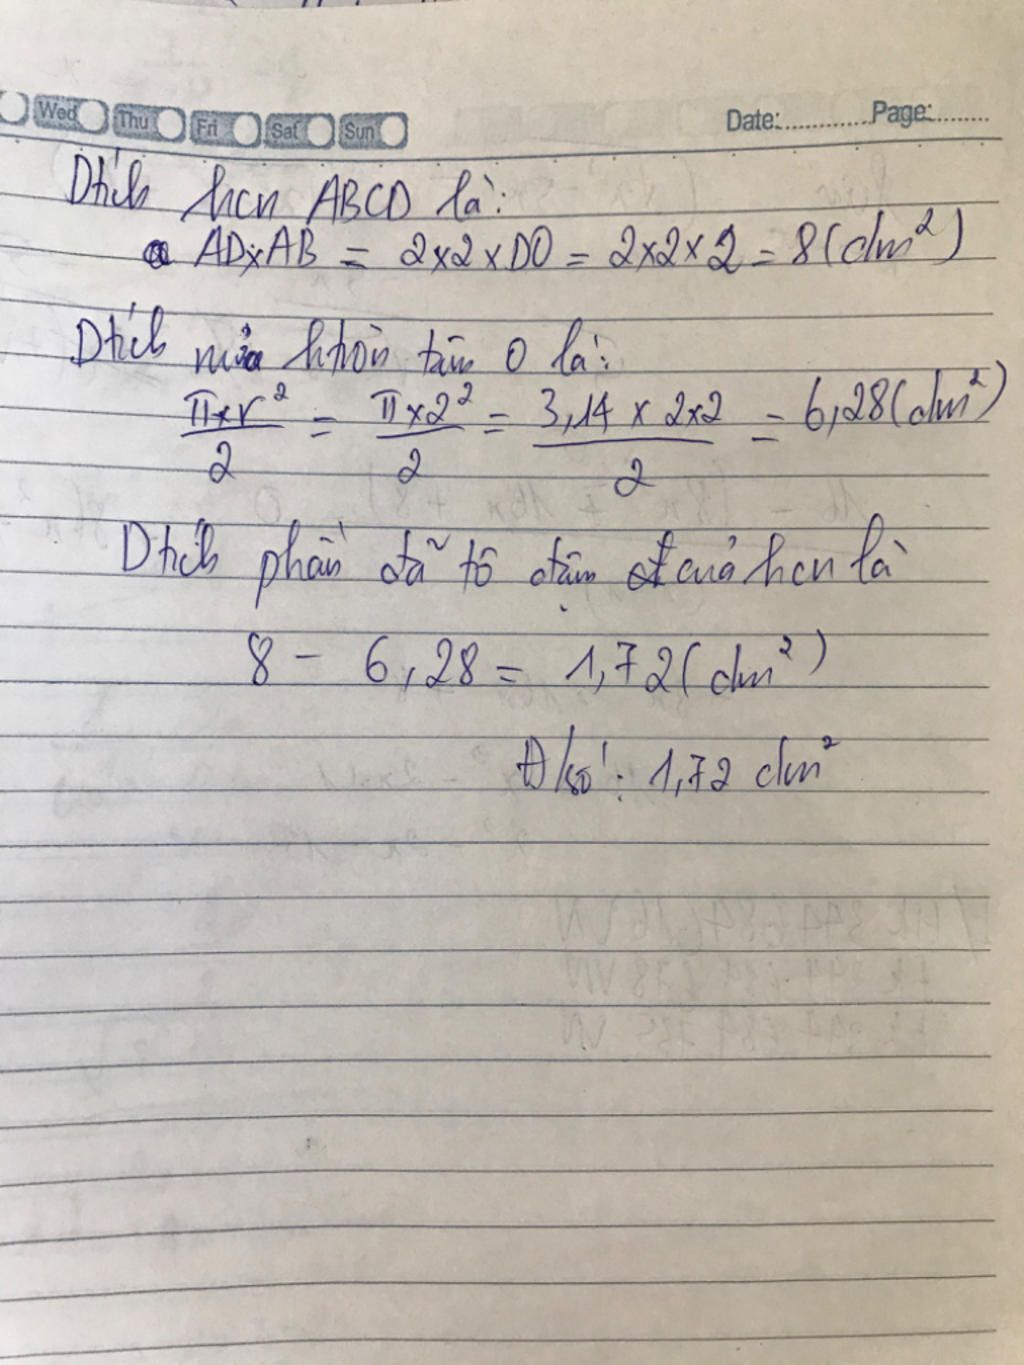 Wed Thu Fri Sat Sun Date:............Page:........
Dtích hcn ABCD là:
ADxAB = 2x2xDO = 2x2x2 = 8(dm²)
Dtích nửa htròn tâm O là:
π×r²/2 = π×2²/2 = 3,14 × 2×2/2 = 6,28(dm²)
Dtích phần đã tô đậm của hcn là
8 - 6,28 = 1,72(dm²)
Đ/số: 1,72 dm²